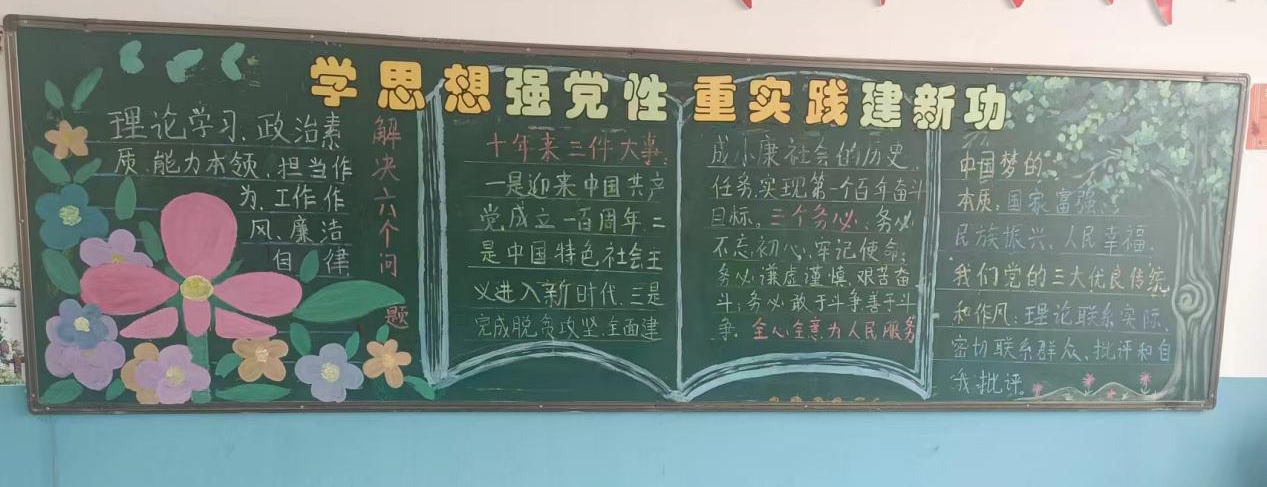 学思想强党性 重实践建新功
理论学习、政治素
质、能力本领、担当作
为、工作作
风、廉洁
自律
解决六个问题
十年来三件大事：
一是迎来中国共产
党成立一百周年、二
是中国特色社会主
义进入新时代、三是
完成脱贫攻坚、全面建
成小康社会的历史
任务，实现第一个百年奋斗
目标。三个务必：务必
不忘初心、牢记使命；
务必谦虚谨慎、艰苦奋
斗；务必敢于斗争善于斗
争。全心全意为人民服务
中国梦的
本质：国家富强、
民族振兴、人民幸福。
我们党的三大优良传统
和作风：理论联系实际、
密切联系群众、批评和自
我批评。